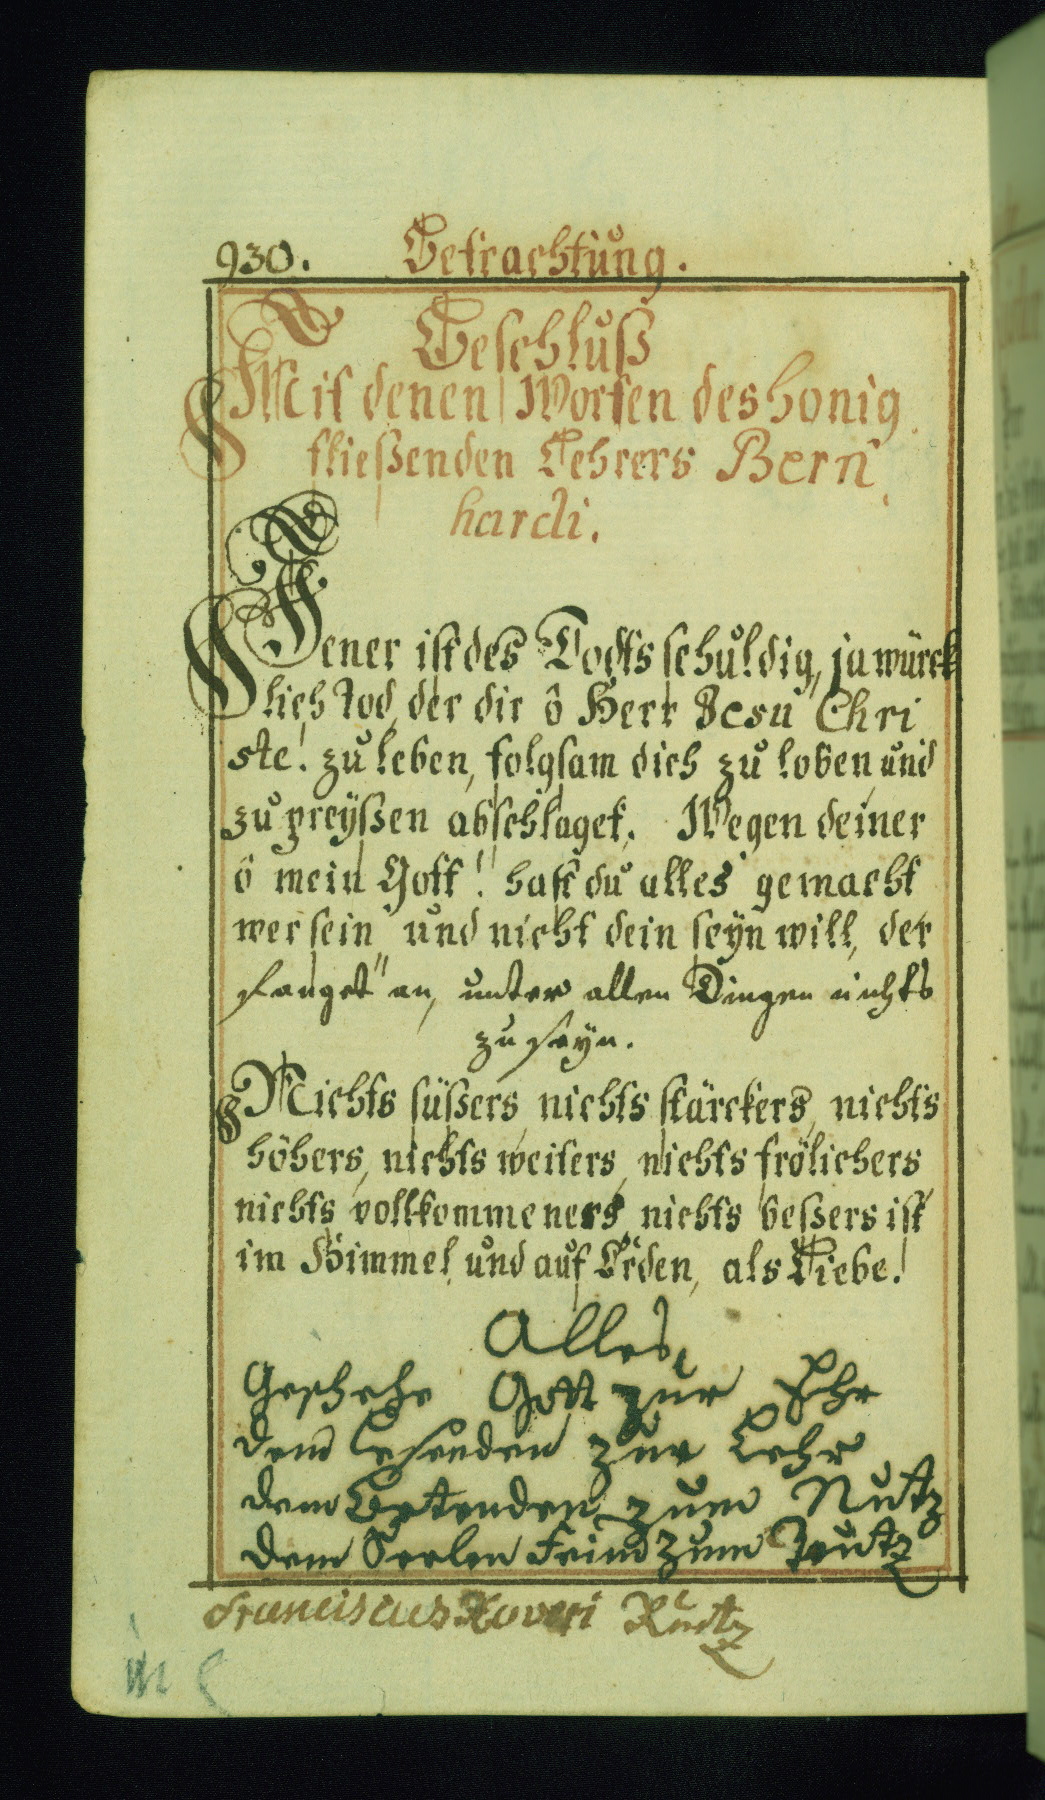 930. Betrachtung.
Beschluß
Mit denen Worten des honig
fließenden Lehrers Bern
hardi.
Jener ist des Todts schuldig, ja würck
lich tod, der dir ô Herr Jesu Chri
ste! zu leben, folgsam dich zu loben und
zu preÿßen abschlaget. Wegen deiner
ô mein Gott! hast du alles gemacht
wer sein und nicht dein seÿn will, der
fanget an, unter allen Dingen nichts
zu seÿn.
Nichts süßers, nichts stärckers, nichts
höhers, nichts weiters, nichts frölichers
nichts vollkommeners, nichts beßers ist
im Himmel und auf Erden, als Liebe!
Alles,
Geschehe Gott zur Ehr
dem Lesenden zur Lehr
dem Betenden zum Nutz
dem Seelen Feind zum Trutz
Franciscus Xaveri Rutz